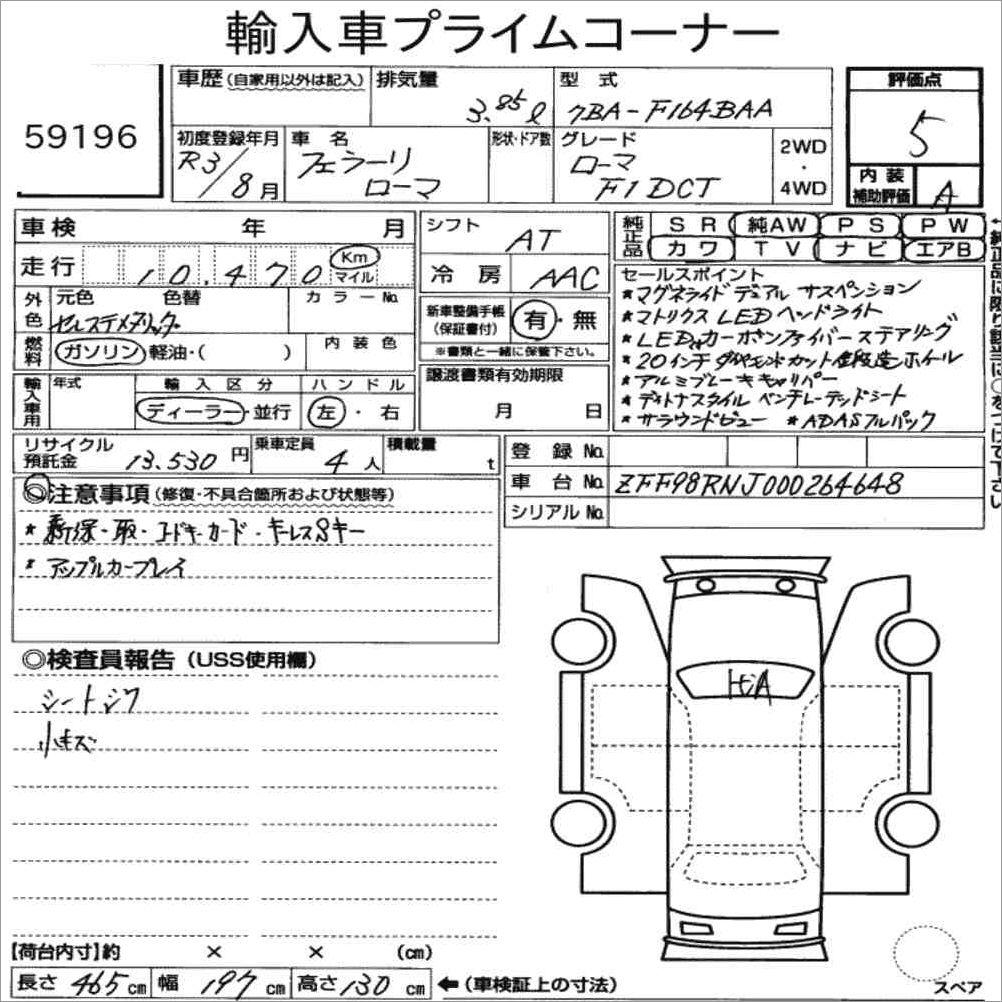 輸入車プライムコーナー
59196
車歴(自家用以外は記入)
排気量 3.85ℓ
型式 7BA-F164BAA
評価点 5
初度登録年月 R3/8月
車名 フェラーリ ローマ
形状・ドア数
グレード ローマ F1 DCT
2WD・4WD
内装補助評価 A
車検 年 月
走行 10,470 Km マイル
シフト AT
冷房 AAC
純正品 SR 純AW PS PW
カワ TV ナビ エアB
←純正品に限り該当に○をつけて下さい
外色 元色 色替 セルステメタリック
カラーNo.
燃料 ガソリン・軽油・( )
内装色
新車整備手帳(保証書付) 有・無
※書類と一緒に保管下さい。
セールスポイント
*マグネライド デュアル サスペンション
*マトリクス LED ヘッドライト
*LED付カーボンファイバーステアリング
*20インチ ダイヤモンドカット鍛造ホイール
*アルミブレーキキャリパー
*デイトナスタイル ベンチレーテッドシート
*サラウンドビュー *ADASフルパック
輸入車用 年式
輸入区分 ディーラー・並行
ハンドル 左・右
譲渡書類有効期限 月 日
リサイクル預託金 13,530円
乗車定員 4人
積載量 t
登録No.
車台No. ZFF98RNJ000264648
シリアルNo.
◎注意事項(修復・不具合箇所および状態等)
*新保・取・コードキーカード・キーレスSキー
*アップルカープレイ
◎検査員報告(USS使用欄)
シートシワ
小キズ
トビA
【荷台内寸】約 × × (cm)
長さ 465cm 幅 197cm 高さ 130cm ←(車検証上の寸法)
スペア